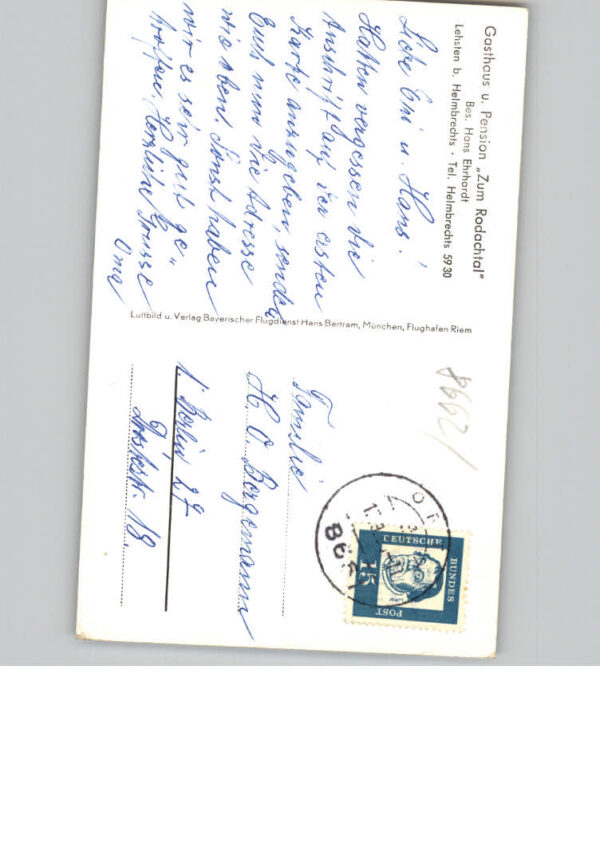 Gasthaus u. Pension „Zum Rodachtal"
Bes. Hans Ehrhardt
Lehsten b. Helmbrechts · Tel. Helmbrechts 59 30
Liebe Evi u. Hans!
Hatten vergessen die
Anschrift auf der ersten
Karte anzugeben, senden
Euch nun die Adresse
wie oben. Sonst haben
wir es sehr gut ge„
troffen, Herzliche Grüsse
Oma
Luftbild u. Verlag Bayerischer Flugdienst Hans Bertram, München, Flughafen Riem
8662/
DEUTSCHE
BUNDES
POST
15
Familie
H. O. Bergemann
1 Berlin 27
18.